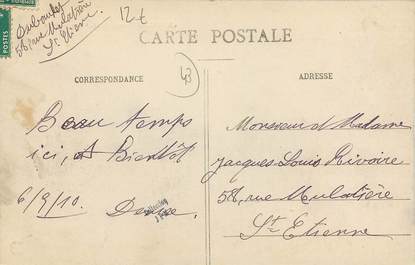 12€
58, rue Mulatière
St Etienne
POSTES
CARTE POSTALE
43
CORRESPONDANCE
ADRESSE
Beau temps
ici, A Bientôt
6/9/10. Denise.
Monsieur et Madame
Jacques Louis Rivoire
58, rue Mulatière
St Etienne